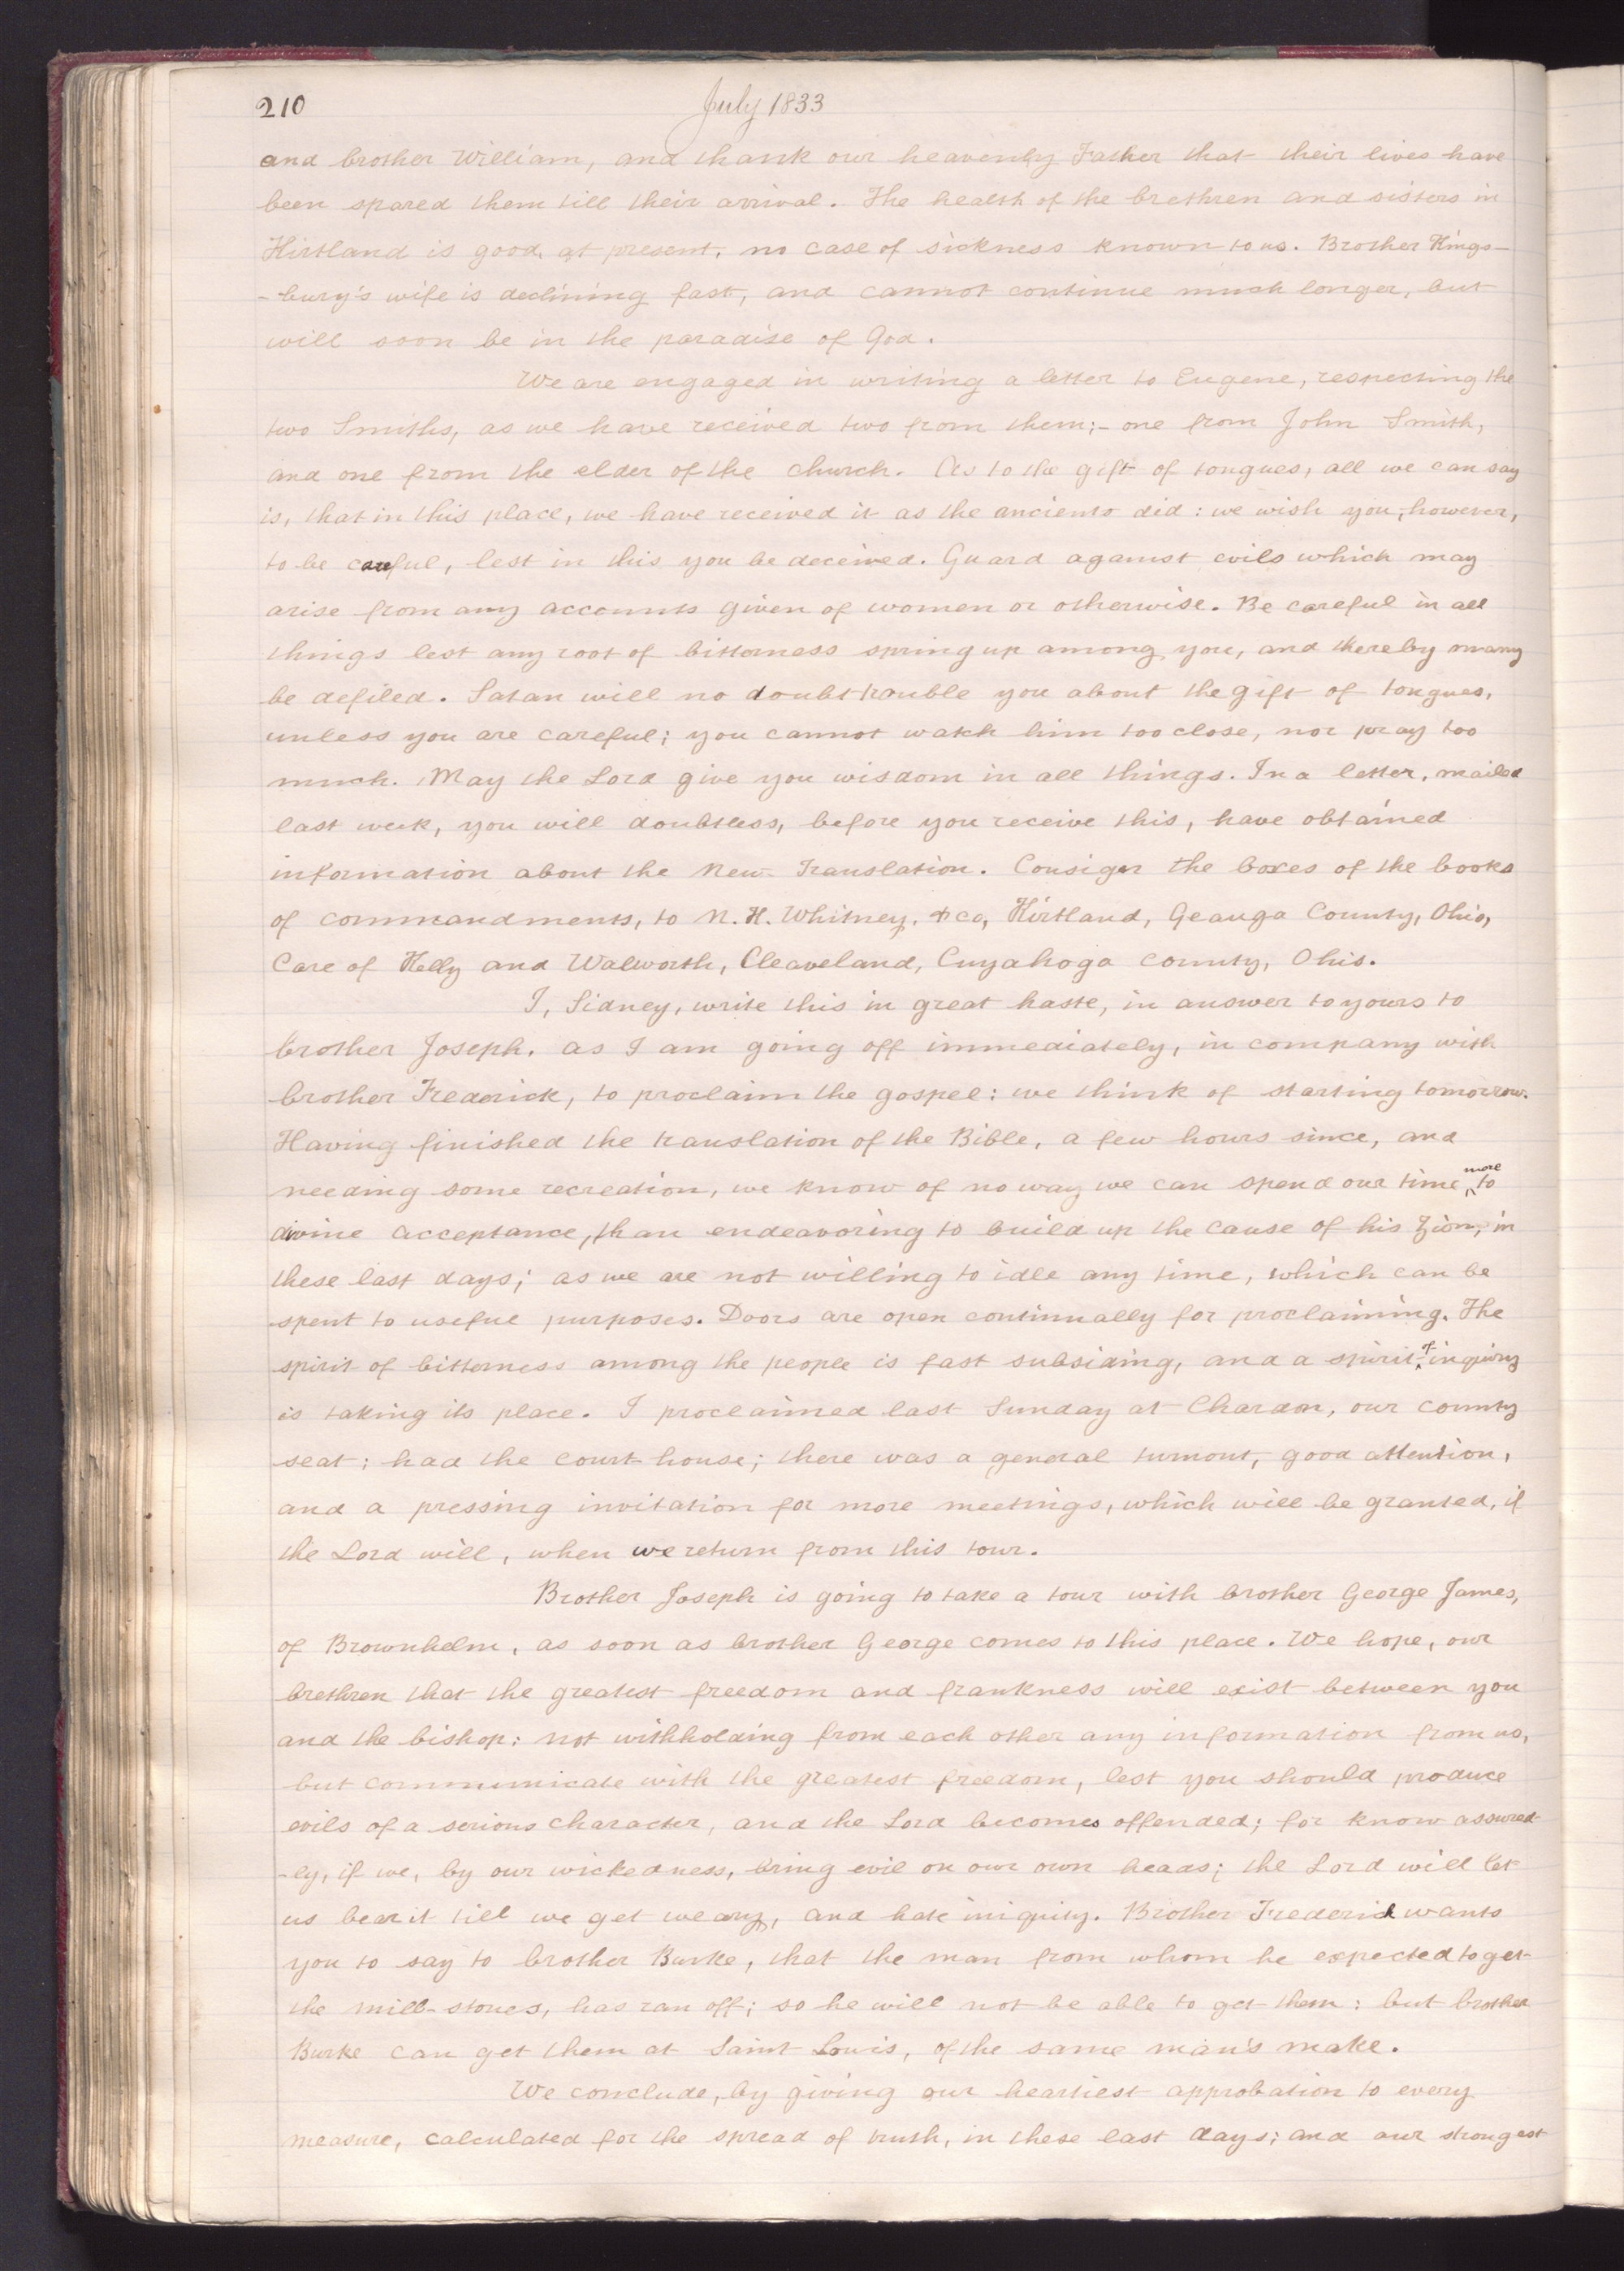 210
July 1833
and brother William, and thank our heavenly Father that their lives have
been spared them till their arrival. The health of the brethren and sisters in
Kirtland is good, at present, no case of sickness known to us. Brother Kings-
-bury's wife is declining fast, and cannot continue much longer, but
will soon be in the paradise of God.
We are engaged in writing a letter to Eugene, respecting the
two Smiths, as we have received two from them;- one from John Smith,
and one from the elder of the church. As to the gift of tongues, all we can say
is, that in this place, we have received it as the ancients did: we wish you, however,
to be careful, lest in this you be deceived. Guard against evils which may
arise from any accounts given of women or otherwise. Be careful in all
things lest any root of bitterness spring up among you, and thereby many
be defiled. Satan will no doubt trouble you about the gift of tongues,
unless you are careful; you cannot watch him too close, nor pray too
much. May the Lord give you wisdom in all things. In a letter, mailed
last week, you will doubtless, before you receive this, have obtained
information about the New Translation. Consign the boxes of the books
of commandments, to N. K. Whitney, & co, Kirtland, Geauga County, Ohio,
Care of Kelly and Walworth, Cleaveland, Cuyahoga County, Ohio.
I, Sidney, write this in great haste, in answer to yours to
brother Joseph. as I am going off immediately, in company with
brother Frederick, to proclaim the gospel: we think of starting tomorrow.
Having finished the translation of the Bible, a few hours since, and
needing some recreation, we know of no way we can spend our time more to
divine acceptance, than endeavoring to build up the cause of his Zion, in
these last days; as we are not willing to idle any time, which can be
spent to useful purposes. Doors are open continually for proclaiming. The
spirit of bitterness among the people is fast subsiding, and a spirit of inquiry
is taking its place. I proclaimed last Sunday at Chardon, our county
seat: had the court-house; there was a general turnout, good attention,
and a pressing invitation for more meetings, which will be granted, if
the Lord will, when we return from this tour.
Brother Joseph is going to take a tour with brother George James,
of Brownhelm, as soon as brother George comes to this place. We hope, our
brethren that the greatest freedom and frankness will exist between you
and the bishop: not withholding from each other any information from us,
but communicate with the greatest freedom, lest you should produce
evils of a serious character, and the Lord becomes offended; for know assured-
-ly, if we, by our wickedness, bring evil on our own heads; the Lord will let
us bear it till we get weary, and hate iniquity. Brother Frederick wants
you to say to brother Burke, that the man from whom he expected to get
the mill-stones, has ran off; so he will not be able to get them: but brother
Burke can get them at Saint Louis, of the same man's make.
We conclude, by giving our heartiest approbation to every
measure, calculated for the spread of truth, in these last days; and our strongest